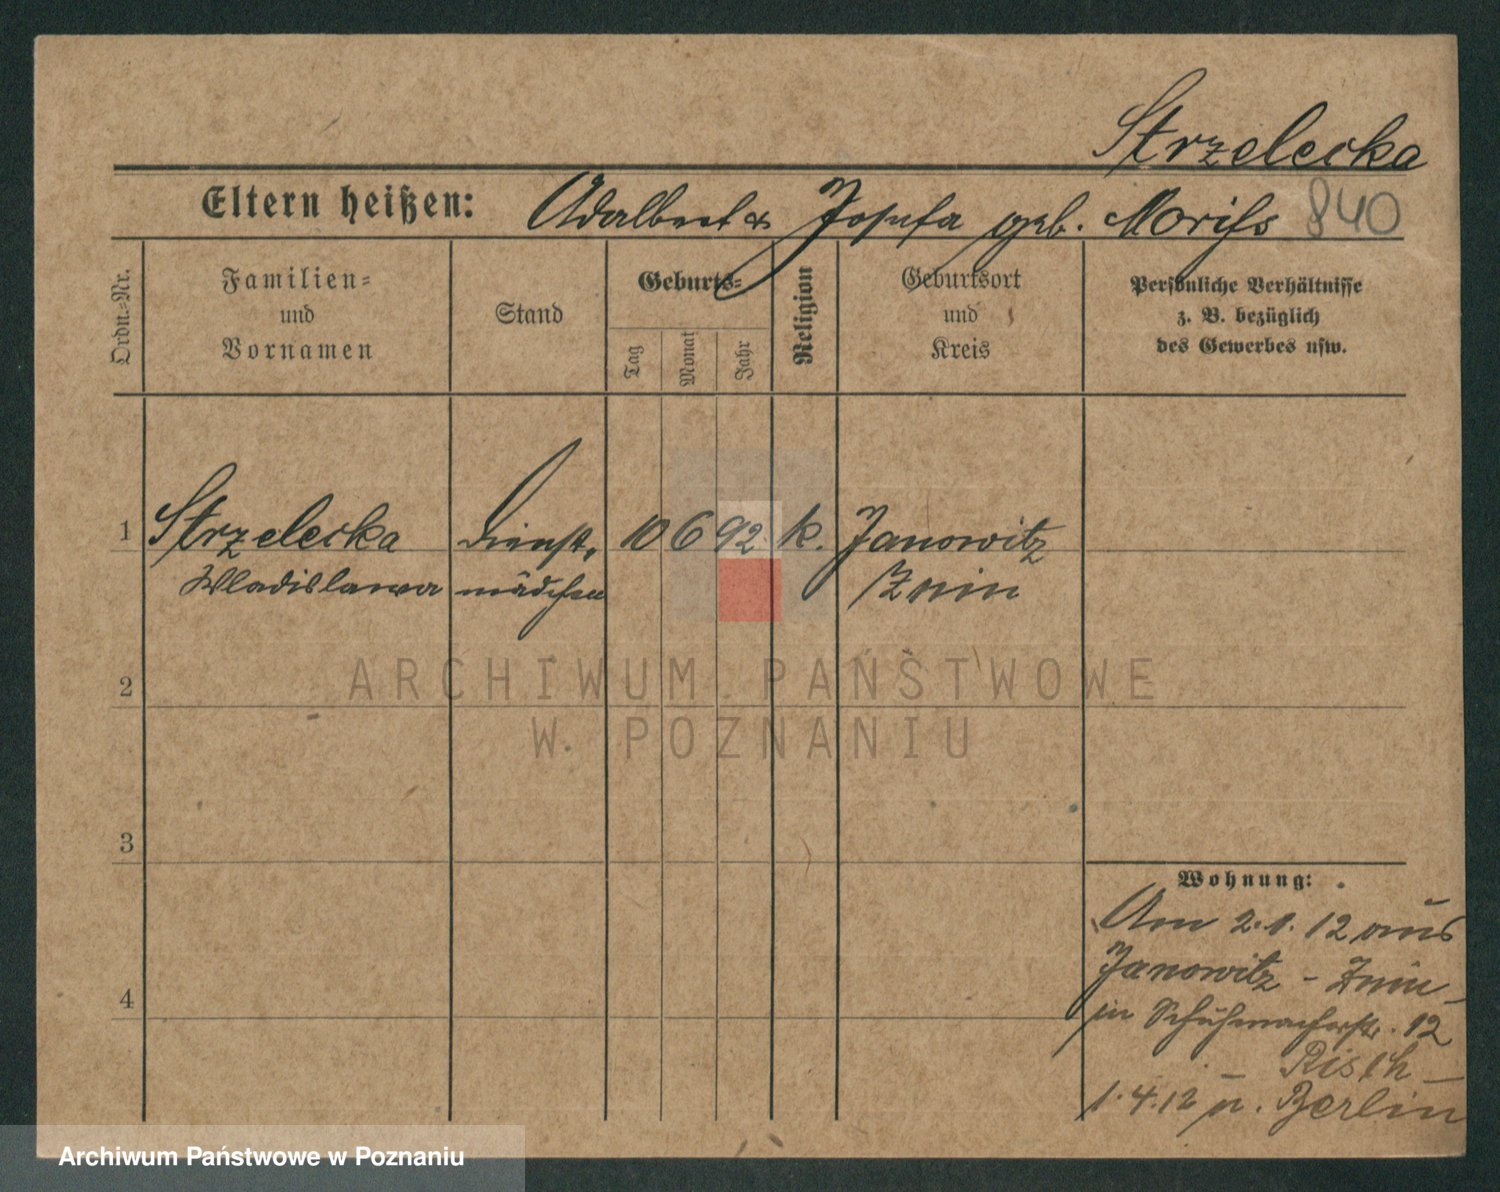 Strzelecka
Eltern heißen: Adalbert & Josefa geb. 840
Ordn.-Nr.
Familien-
und
Vornamen
Stand
Geburts-
Tag
Monat
Jahr
Religion
Geburtsort
und
Kreis
Persönliche Verhältnisse
z. B. bezüglich
des Gewerbes usw.
1 Strzelecka Dienst- 10 6 92 k. Janowitz
Wladislawa mädchen Znin
2
3
4
Wohnung:
Am 2.1.12 aus
Janowitz - Znin -
in Schuhmacherstr. 12
- Risch -
1.4.12 n. Berlin
ARCHIWUM PAŃSTWOWE
W POZNANIU
Archiwum Państwowe w Poznaniu